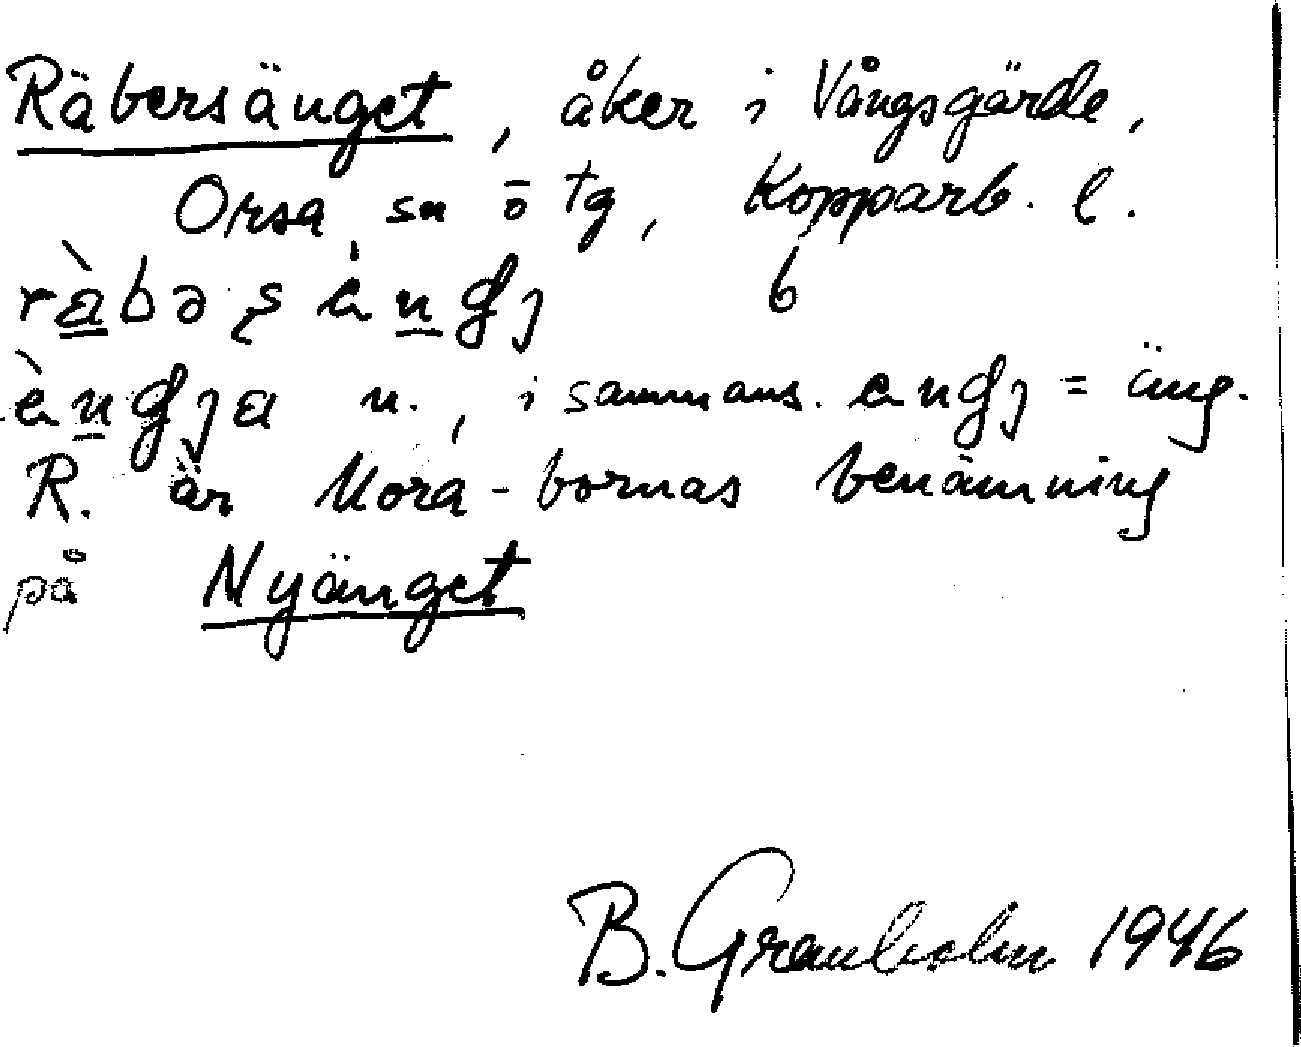 Räbersänget, åker i Vångsgärde,
Orsa sn ö tg, Kopparb. l.
6
n., i sammans. = äng.
R. är Mora-bornas benämning
på Nyänget
B. Granholm 1946